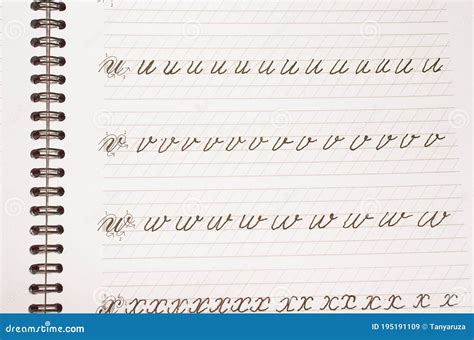 u u u u u u u u u u u u u u
v v v v v v v v v v v v v v
w w w w w w w w w w
x x x x x x x x x x x x x x x x x
dreamstime.com
ID 195191109 © Tanyaruza